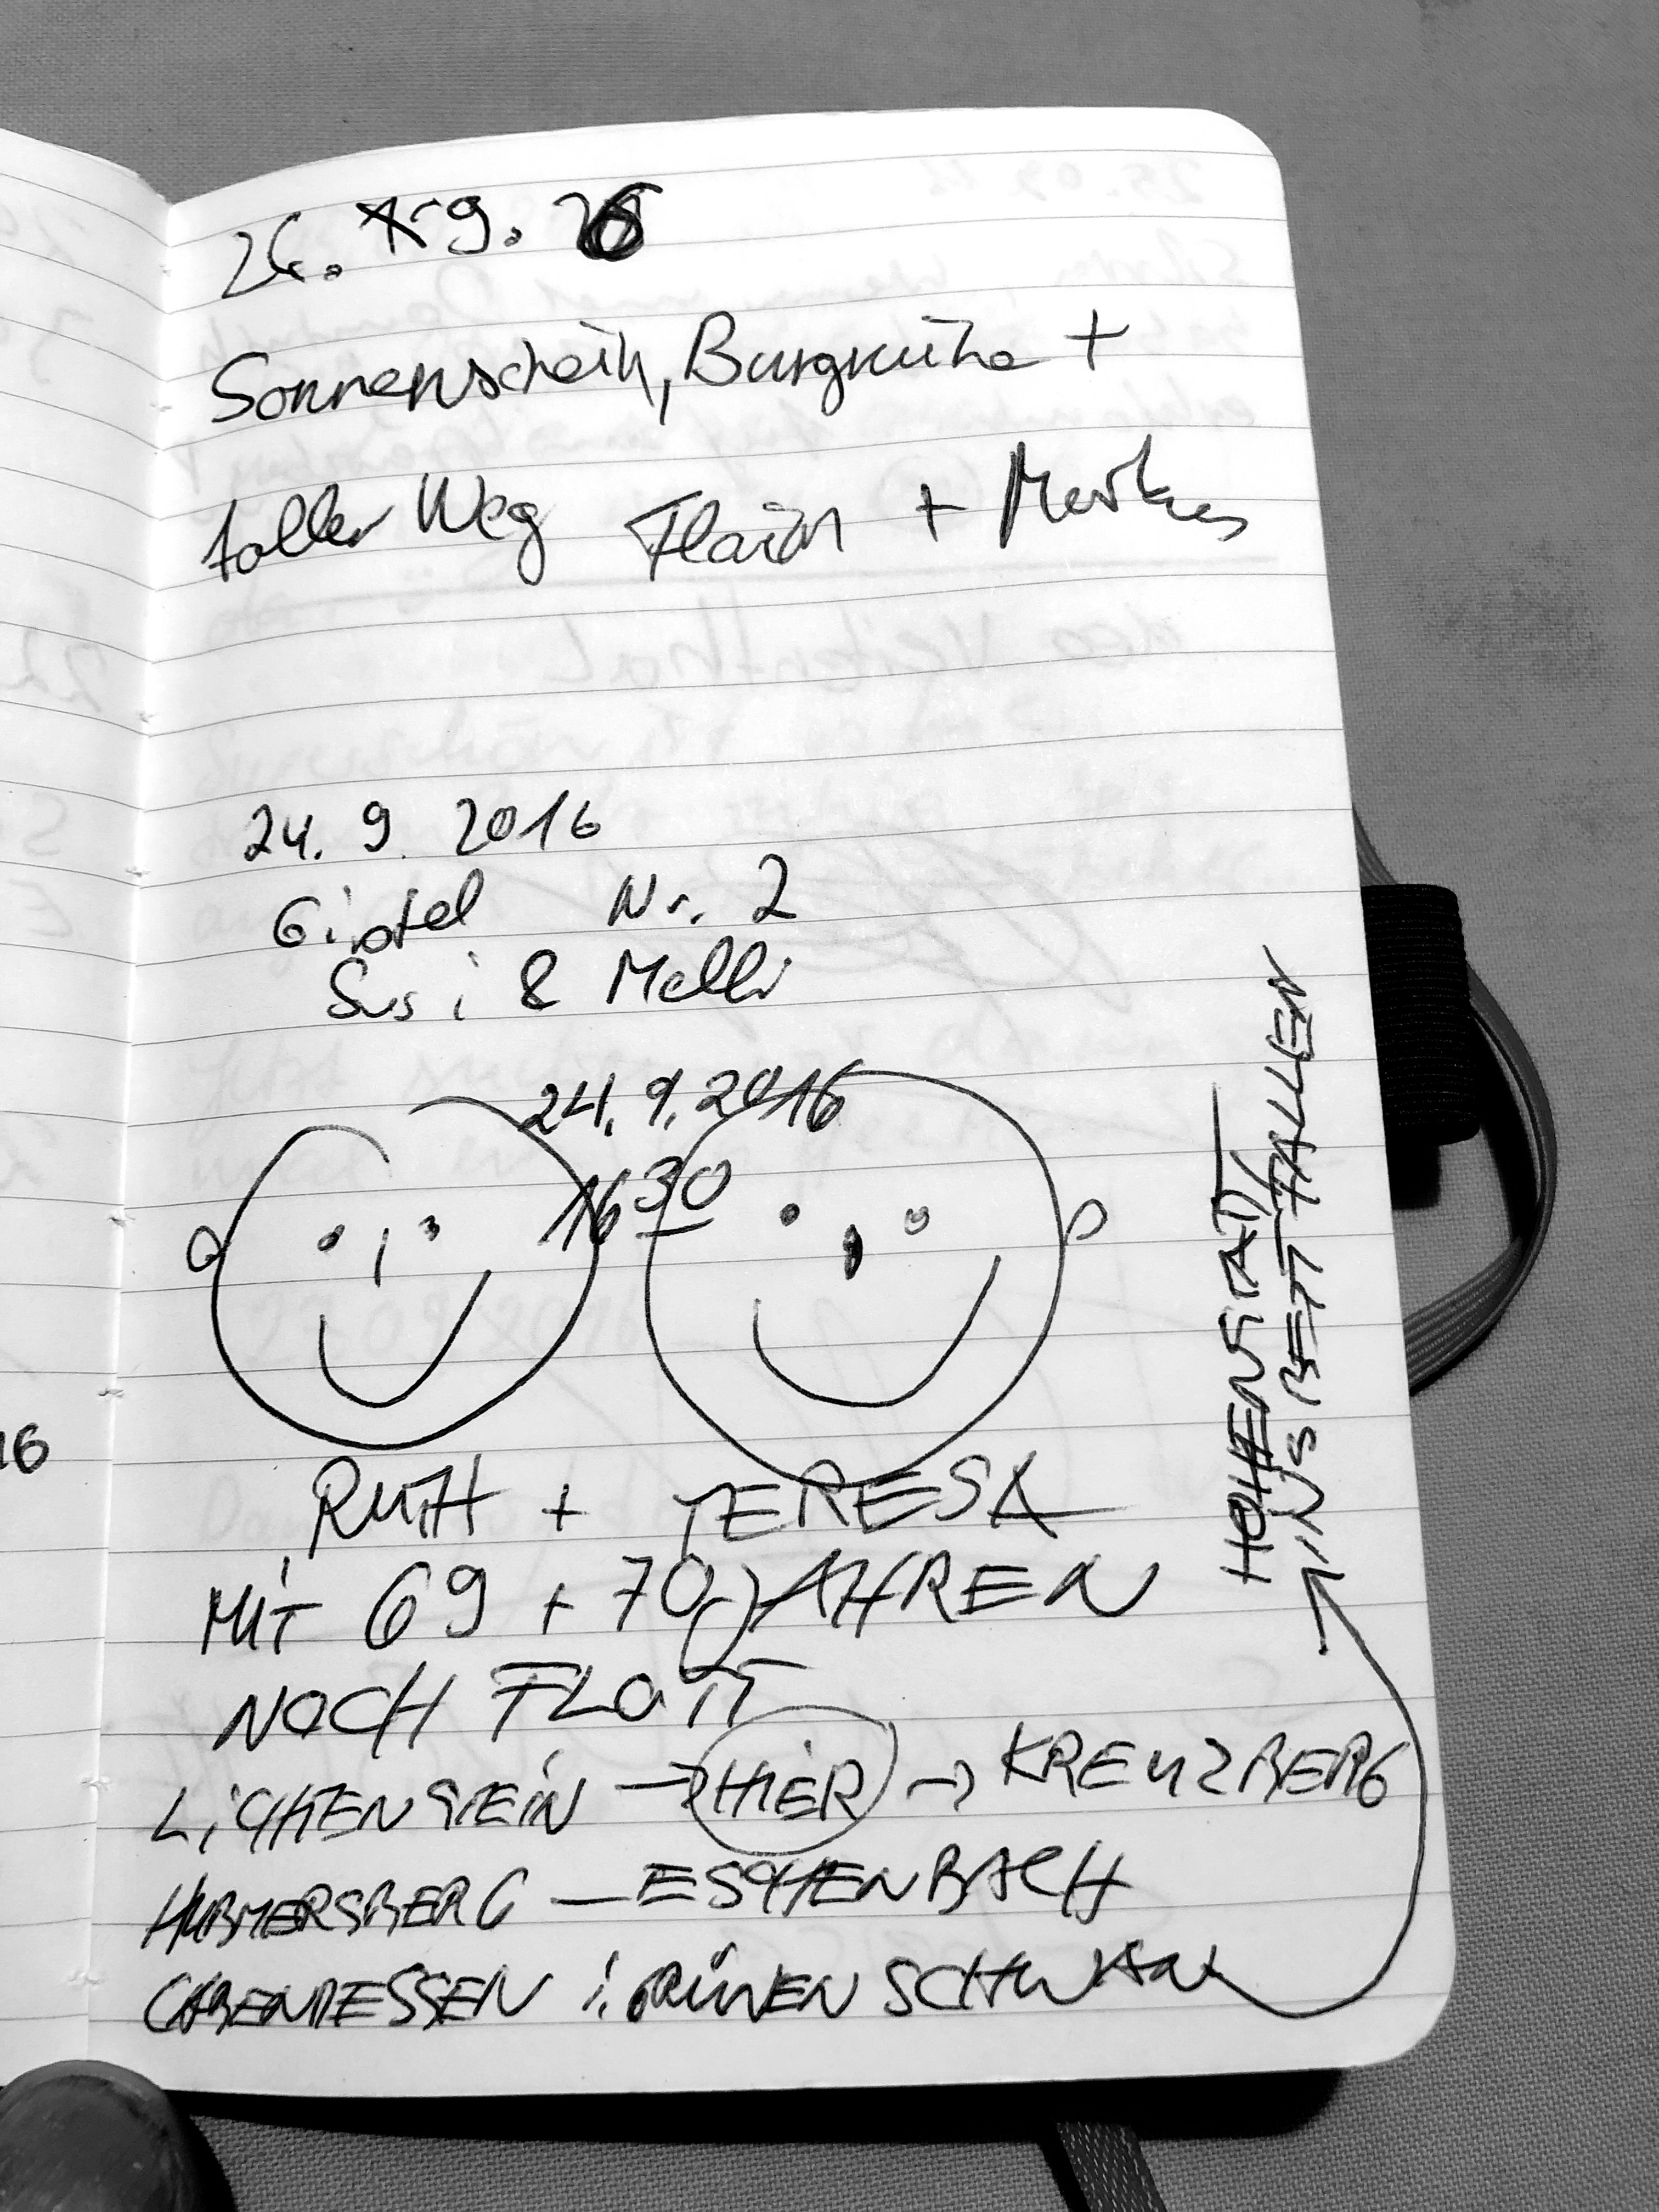 26. 9. 16
Sonnenschein, Burgruine +
toller Weg Flaién + Markus
24. 9. 2016
Gipfel Nr. 2
Susi & Melli
24.9.2016
16 30
RUTH + TERESA
MIT 69 + 70 JAHREN
NOCH FLOTT
LICHTENSTEIN → HIER → KREUZBERG
HUBMERSBERG — ESCHENBACH
ABENDESSEN i. GRÜNEN SCHWAN
HOHENSTADT
INS BETT FALLEN
16